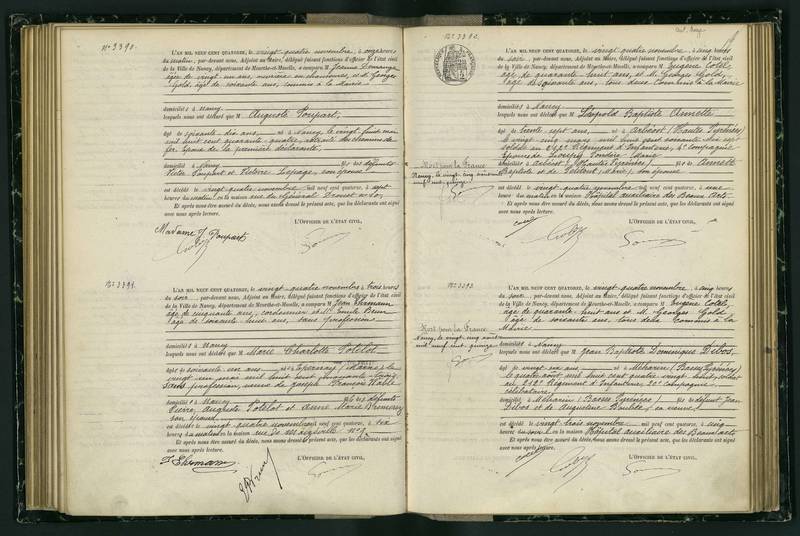 N° 3390.
L'AN MIL NEUF CENT QUATORZE, le vingt quatre novembre, à onze heures
du matin, par-devant nous, Adjoint au Maire, délégué faisant fonctions d'officier de l'état civil
de la Ville de Nancy, département de Meurthe-et-Moselle, a comparu M Jeanne
âgée de vingt un ans, et M. Georges
Gold, âgé de soixante ans, commis à la Mairie
domiciliés à Nancy
lesquels nous ont déclaré que M Auguste Poupart,
âgé de soixante dix ans, né à Nancy le vingt mai
mil huit cent quarante quatre, retraité des chemins de
fer, époux de la première déclarante
domicilié à Nancy fils des défunts
Victor Poupart et Victoire Lepage, son épouse
est décédé le vingt quatre novembre mil neuf cent quatorze, à sept
heures du matin en la maison rue du Général Drouot
Et après nous être assuré du décès, nous avons dressé le présent acte, que les déclarants ont signé
avec nous après lecture.
L'OFFICIER DE L'ÉTAT CIVIL,
Madame Poupart
N° 3391.
L'AN MIL NEUF CENT QUATORZE, le vingt quatre novembre à trois heures
du soir, par-devant nous, Adjoint au Maire, délégué faisant fonctions d'officier de l'état civil
de la Ville de Nancy, département de Meurthe-et-Moselle, a comparu M Jean Ehrmann
âgé de cinquante ans, cordonnier et M Emile
âgé de soixante huit ans, sans profession
domiciliés à Nancy
lesquels nous ont déclaré que M Marie Charlotte Potelot
âgée de soixante un ans née à Epernay (Marne) le
vingt un mai mil huit cent cinquante trois
sans profession, veuve de Joseph François
domiciliée à Nancy fille des défunts
Pierre Auguste Potelot et Anne Marie
son épouse
est décédée le vingt quatre novembre mil neuf cent quatorze, à six
heures du matin en la maison rue de
Et après nous être assuré du décès, nous avons dressé le présent acte, que les déclarants ont signé
avec nous après lecture.
J. Ehrmann
L'OFFICIER DE L'ÉTAT CIVIL,
N° 3392.
L'AN MIL NEUF CENT QUATORZE, le vingt quatre novembre, à cinq heures
du soir, par-devant nous, Adjoint au Maire, délégué faisant fonctions d'officier de l'état civil
de la Ville de Nancy, département de Meurthe-et-Moselle, a comparu M Eugène Cotel,
âgé de quarante huit ans, et M. Georges Gold,
âgé de soixante ans, tous deux commis à la Mairie
domiciliés à Nancy
lesquels nous ont déclaré que M Léopold Baptiste Annette
âgé de trente sept ans, né à (Hautes Pyrénées)
le vingt cinq mai mil huit cent soixante dix sept
soldat au Régiment d'Infanterie, 4e Compagnie
Mort pour la France
Nancy, le vingt cinq
mil neuf cent quinze
domicilié à (Hautes Pyrénées) fils de Annette
Baptiste et de Marie, son épouse
est décédé le vingt quatre novembre mil neuf cent quatorze, à une
heure du soir en la maison Hôpital auxiliaire des Beaux Arts
Et après nous être assuré du décès, nous avons dressé le présent acte, que les déclarants ont signé
avec nous après lecture.
L'OFFICIER DE L'ÉTAT CIVIL,
N° 3393
L'AN MIL NEUF CENT QUATORZE, le vingt quatre novembre, à cinq heures
du soir, par-devant nous, Adjoint au Maire, délégué faisant fonctions d'officier de l'état civil
de la Ville de Nancy, département de Meurthe-et-Moselle, a comparu M Eugène Cotel,
âgé de quarante huit ans et M. Georges Gold
âgé de soixante ans, tous deux commis à la
Mairie
Mort pour la France
Nancy, le vingt cinq
mil neuf cent quinze
domiciliés à Nancy
lesquels nous ont déclaré que M Jean Baptiste Dominique Dibos,
âgé de vingt six ans né à Méharin (Basses Pyrénées)
le quatre août mil huit cent quatre vingt huit, soldat
au 212e Régiment d'Infanterie 20e Compagnie,
célibataire
domicilié à Méharin (Basses Pyrénées) fils de défunt Jean
Dibos et de Augustine sa veuve
est décédé le vingt trois novembre mil neuf cent quatorze, à cinq
heures du soir en la maison Hôpital auxiliaire des Beaux Arts
Et après nous être assuré du décès, nous avons dressé le présent acte, que les déclarants ont signé
avec nous après lecture.
L'OFFICIER DE L'ÉTAT CIVIL,